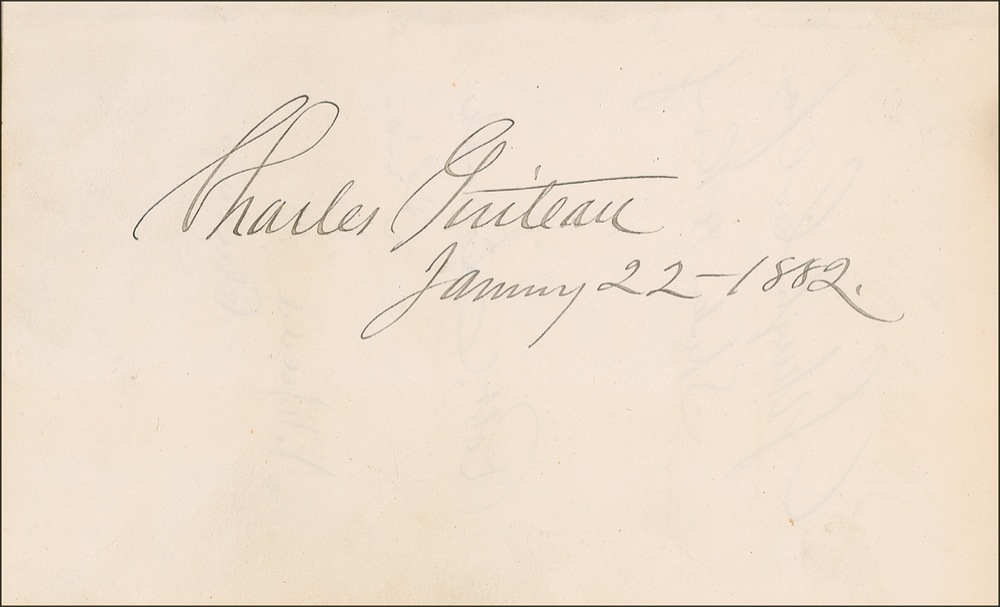 Charles Guiteau
January 22-1882.